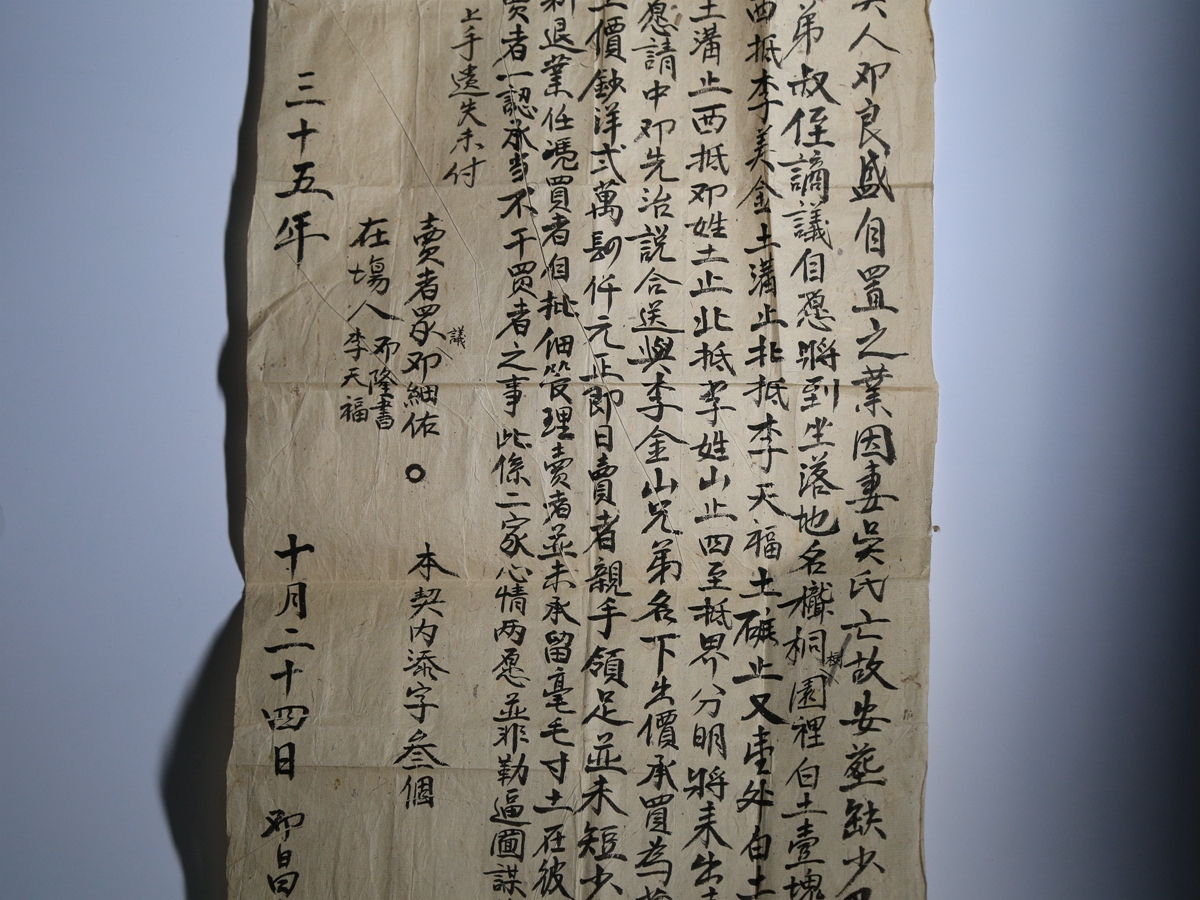 人邓良盛自置之業因妻吳氏亡故安塟缺少
弟叔侄謫議自愿將到坐落地名欓桐樹園裡白土壹塊
西抵李美金土溝止北抵李天福土磡止又壹处白土
土溝止西抵邓姓土止北抵李姓山止四至抵界分明將來出
愿請中邓先治説合送與李金山兄弟名下出價承買為
價鈔洋弍萬仟元正即日賣者親手領足並未短少
退業任憑買者自批佃管理賣者並未承留毫毛寸土在彼
者一認承当不干買者之事此係二家心情两愿並非勒逼圖謀
上手遺失未付
賣者眾議邓細佑
本契内添字叁個
在塲人邓隆書
李天福
三十五年 十月二十四日 邓昌